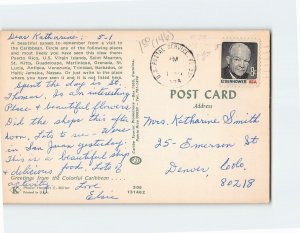 Dear Katharine: 5-1
A beautiful sunset to remember from a visit to
the Caribbean. Circle any of the following places
and most likely you have seen the view there:
Puerto Rico, U.S. Virgin Islands, Saint Maarten,
St. Kitts, Guadeloupe, Martinique, Grenada, St.
Lucia, Antigua, Venezuela, Trinidad, Barbados, or
Haiti, Jamaica, Nassau. Or just write in the place
where you have seen it and it is not listed here.
Spent the day in St.
Thomas. Is an interesting
Place & beautiful flowers
Did the shops this after
noon. Lots to see - Were
in San Juan yesterday.
This is a beautiful ship
& delicious food. Lots to
Greetings from the Colorful Caribbean
activity. Love
Elsie
208
131462
U.S. POSTAL SERVICE
PM
EISENHOWER USA
8c
POST CARD
Address
Mrs. Katharine Smith
25- Emerson St
Denver, Colo.
80218